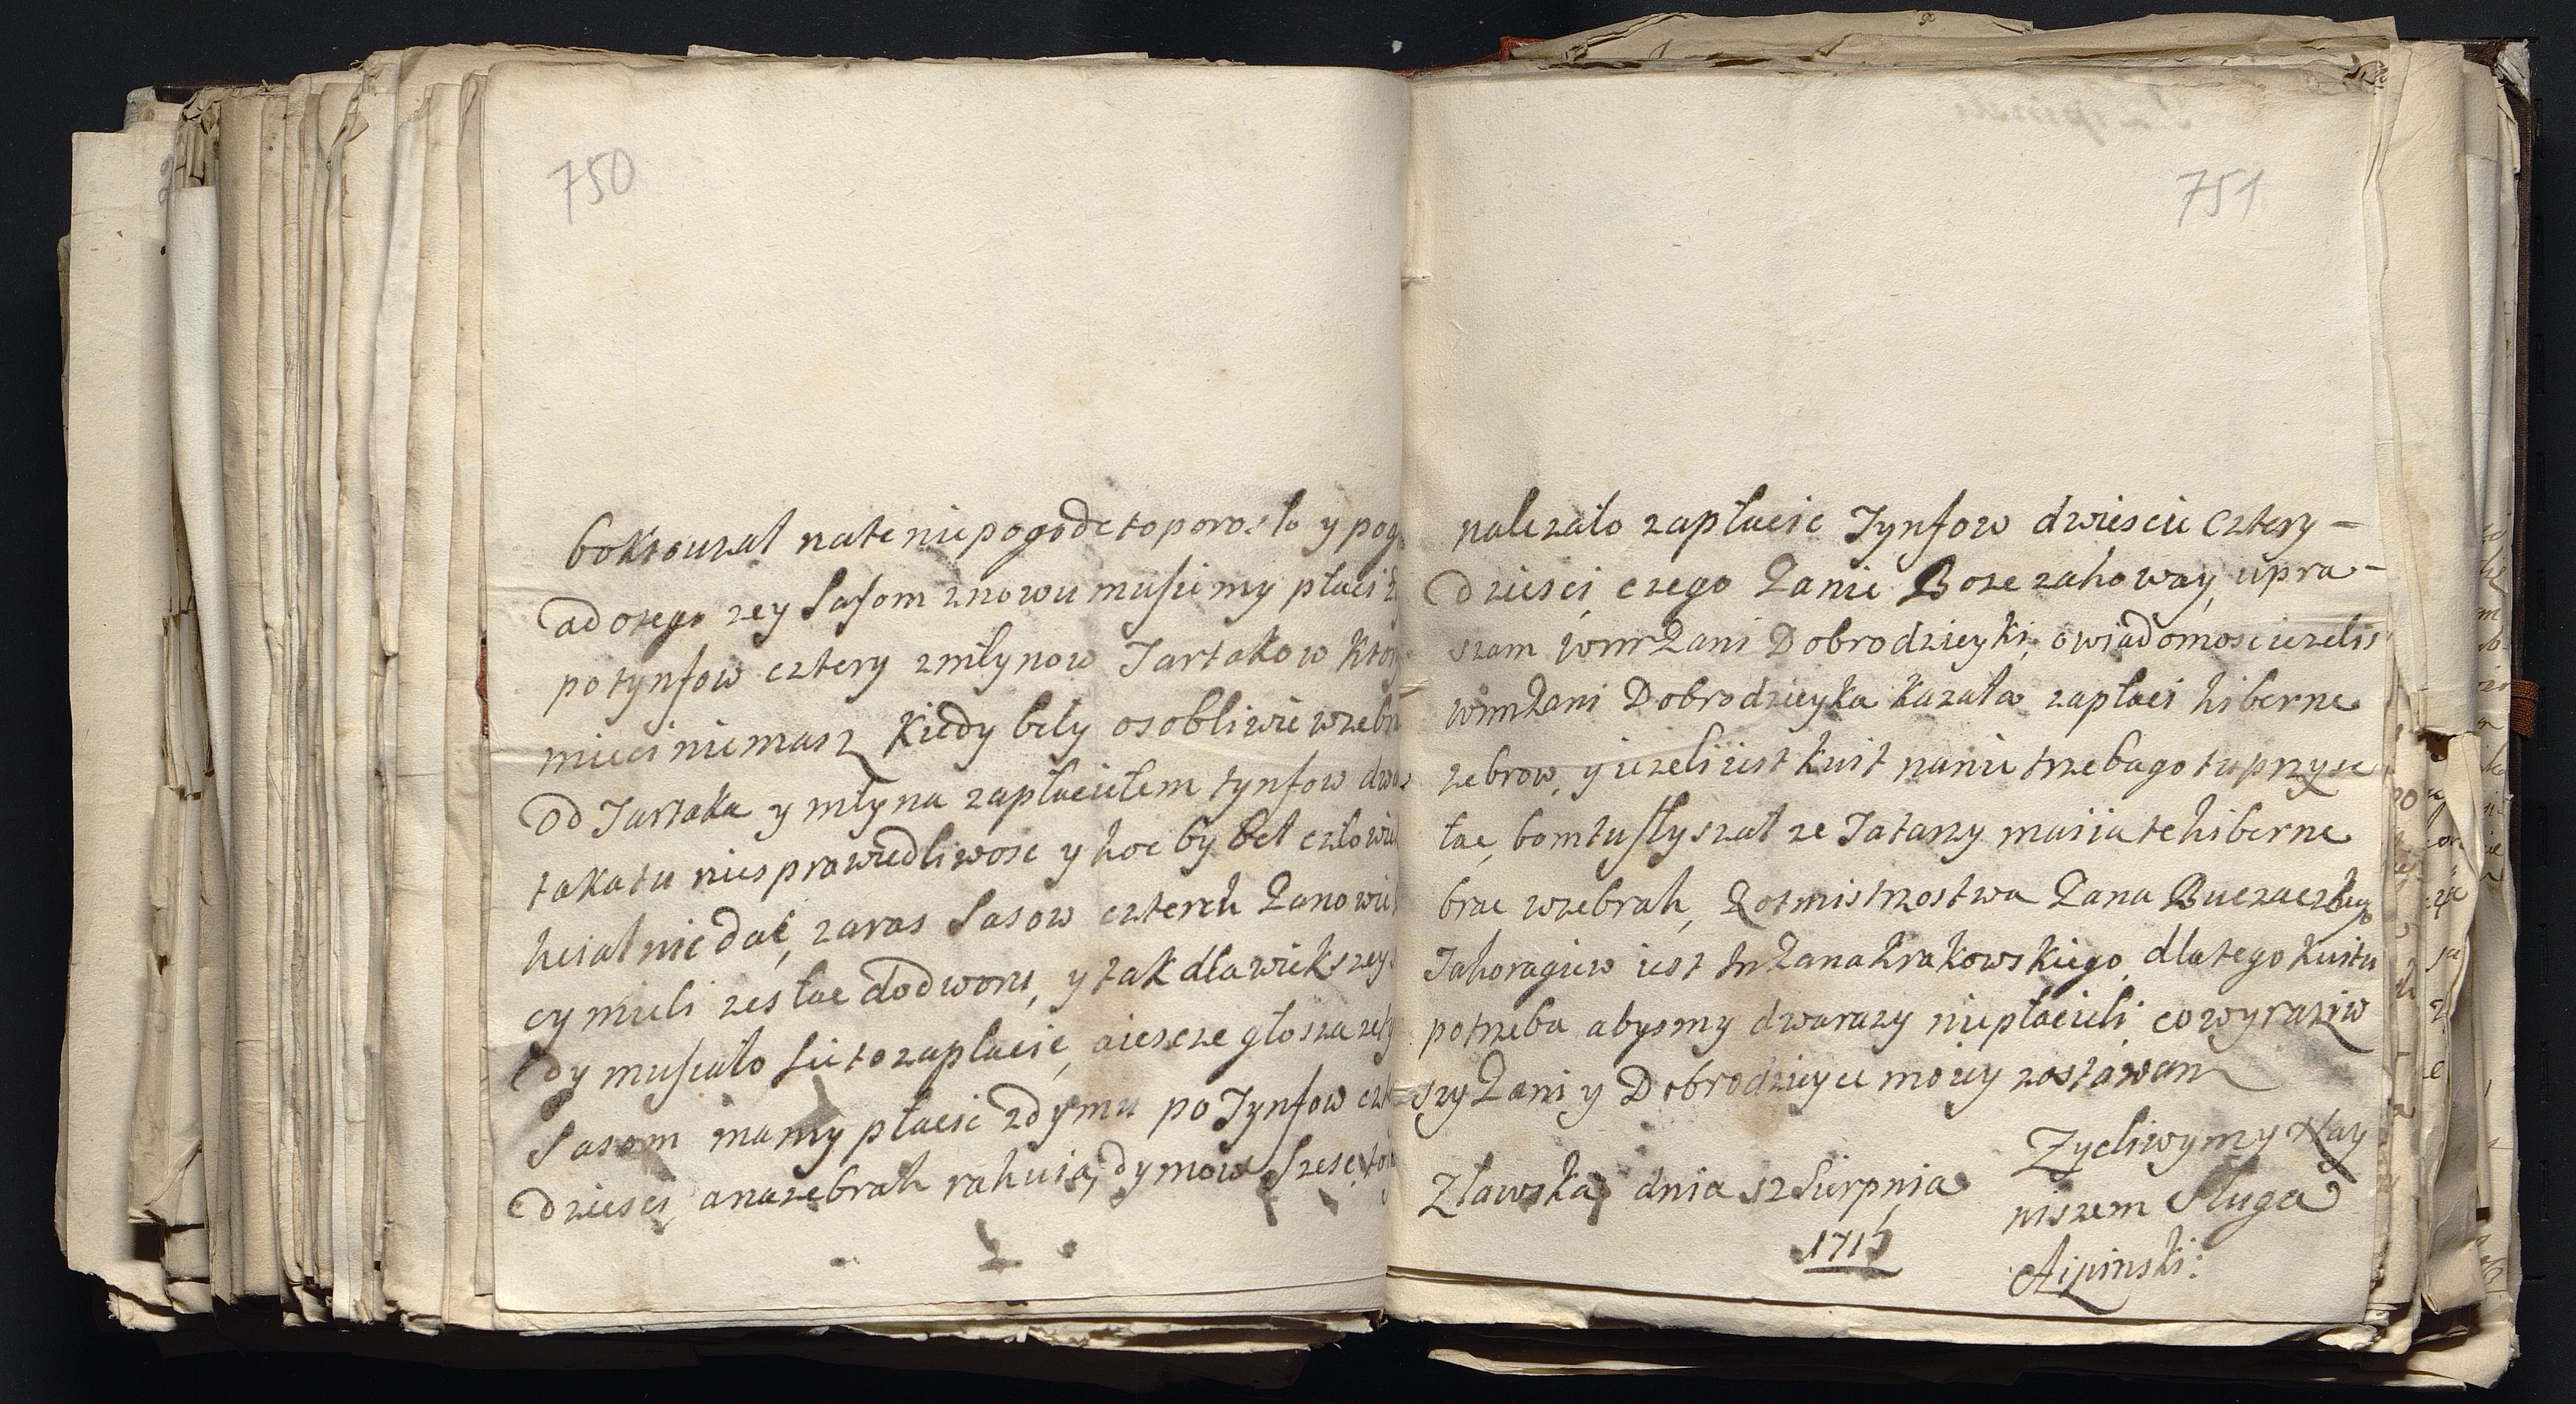 750
boktouzał nate niepogode toporosło y pog
adotego zey Sasom znowu musiemy płaci z
po tynfow cztery zmłynow Tartakow ktor
mieci niemasz kiedy beły osobliwie wzebr
od Tartaka y młyna zapłaciełem tynfow dwa
taka tu niesprawiedliwosc y hoc by beł człowie
hciał nie dać, zaras Sasow czterch Panowie
cy mieli zesłac do dworu, y tak dla wiekszey
dy musiało sie to zapłacić, aiescze głosza zeby
Sasom mamy płacic zdymu po Tynfow czte
dziesci, anazebrah rahuią, dymow szesc, to
751
nalezało zapłacic Tynfow dwiescie cztery-
dziesci, czego Panie Boze zahoway, upra-
szam wmPani Dobrodzieyki, owiadomosc iezelis
wmPani Dobrodzieyka kazała zapłaci hiberne
zebrow, y iezeli iest kwit nanie trzebago tu przysc
łac, bom tu słyszał ze Tatarzy maiia te hiberne
brac wzebrah, Rotmistrzostwa Pana Buczackiego
Tahoragiew iest JmPana Krakowskiego, dlatego kuitu
potrzeba abysmy dwarazy niepłacieli, co wyraziw
szy Pani y Dobrodzieyce moiey zostawam
Zycliwym y Nay
niszem Sługa
Lipinski:
Zławska, dnia 12 Sierpnia
1715